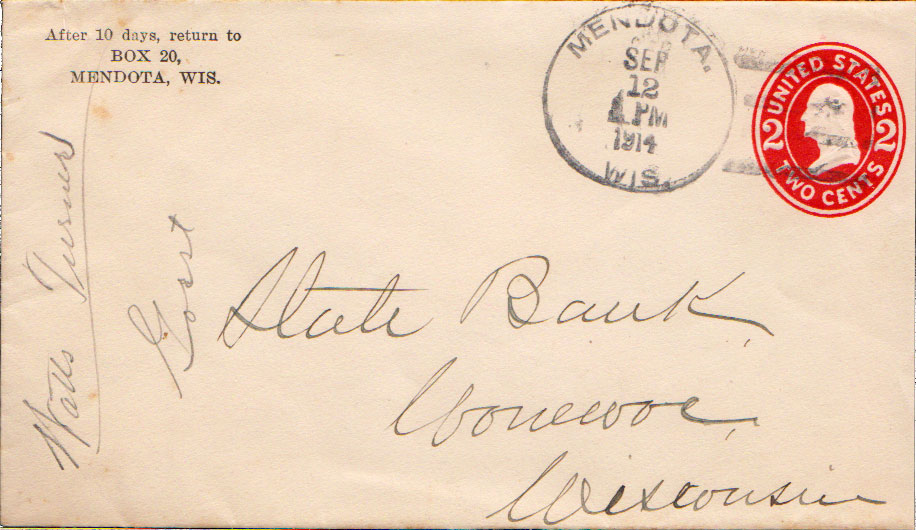 After 10 days, return to
BOX 20,
MENDOTA, WIS.
MENDOTA.
SEP
12
1 PM
1914
WIS.
UNITED STATES
2 2
TWO CENTS
Watts Turner
State Bank,
Wonewoc,
Wisconsin